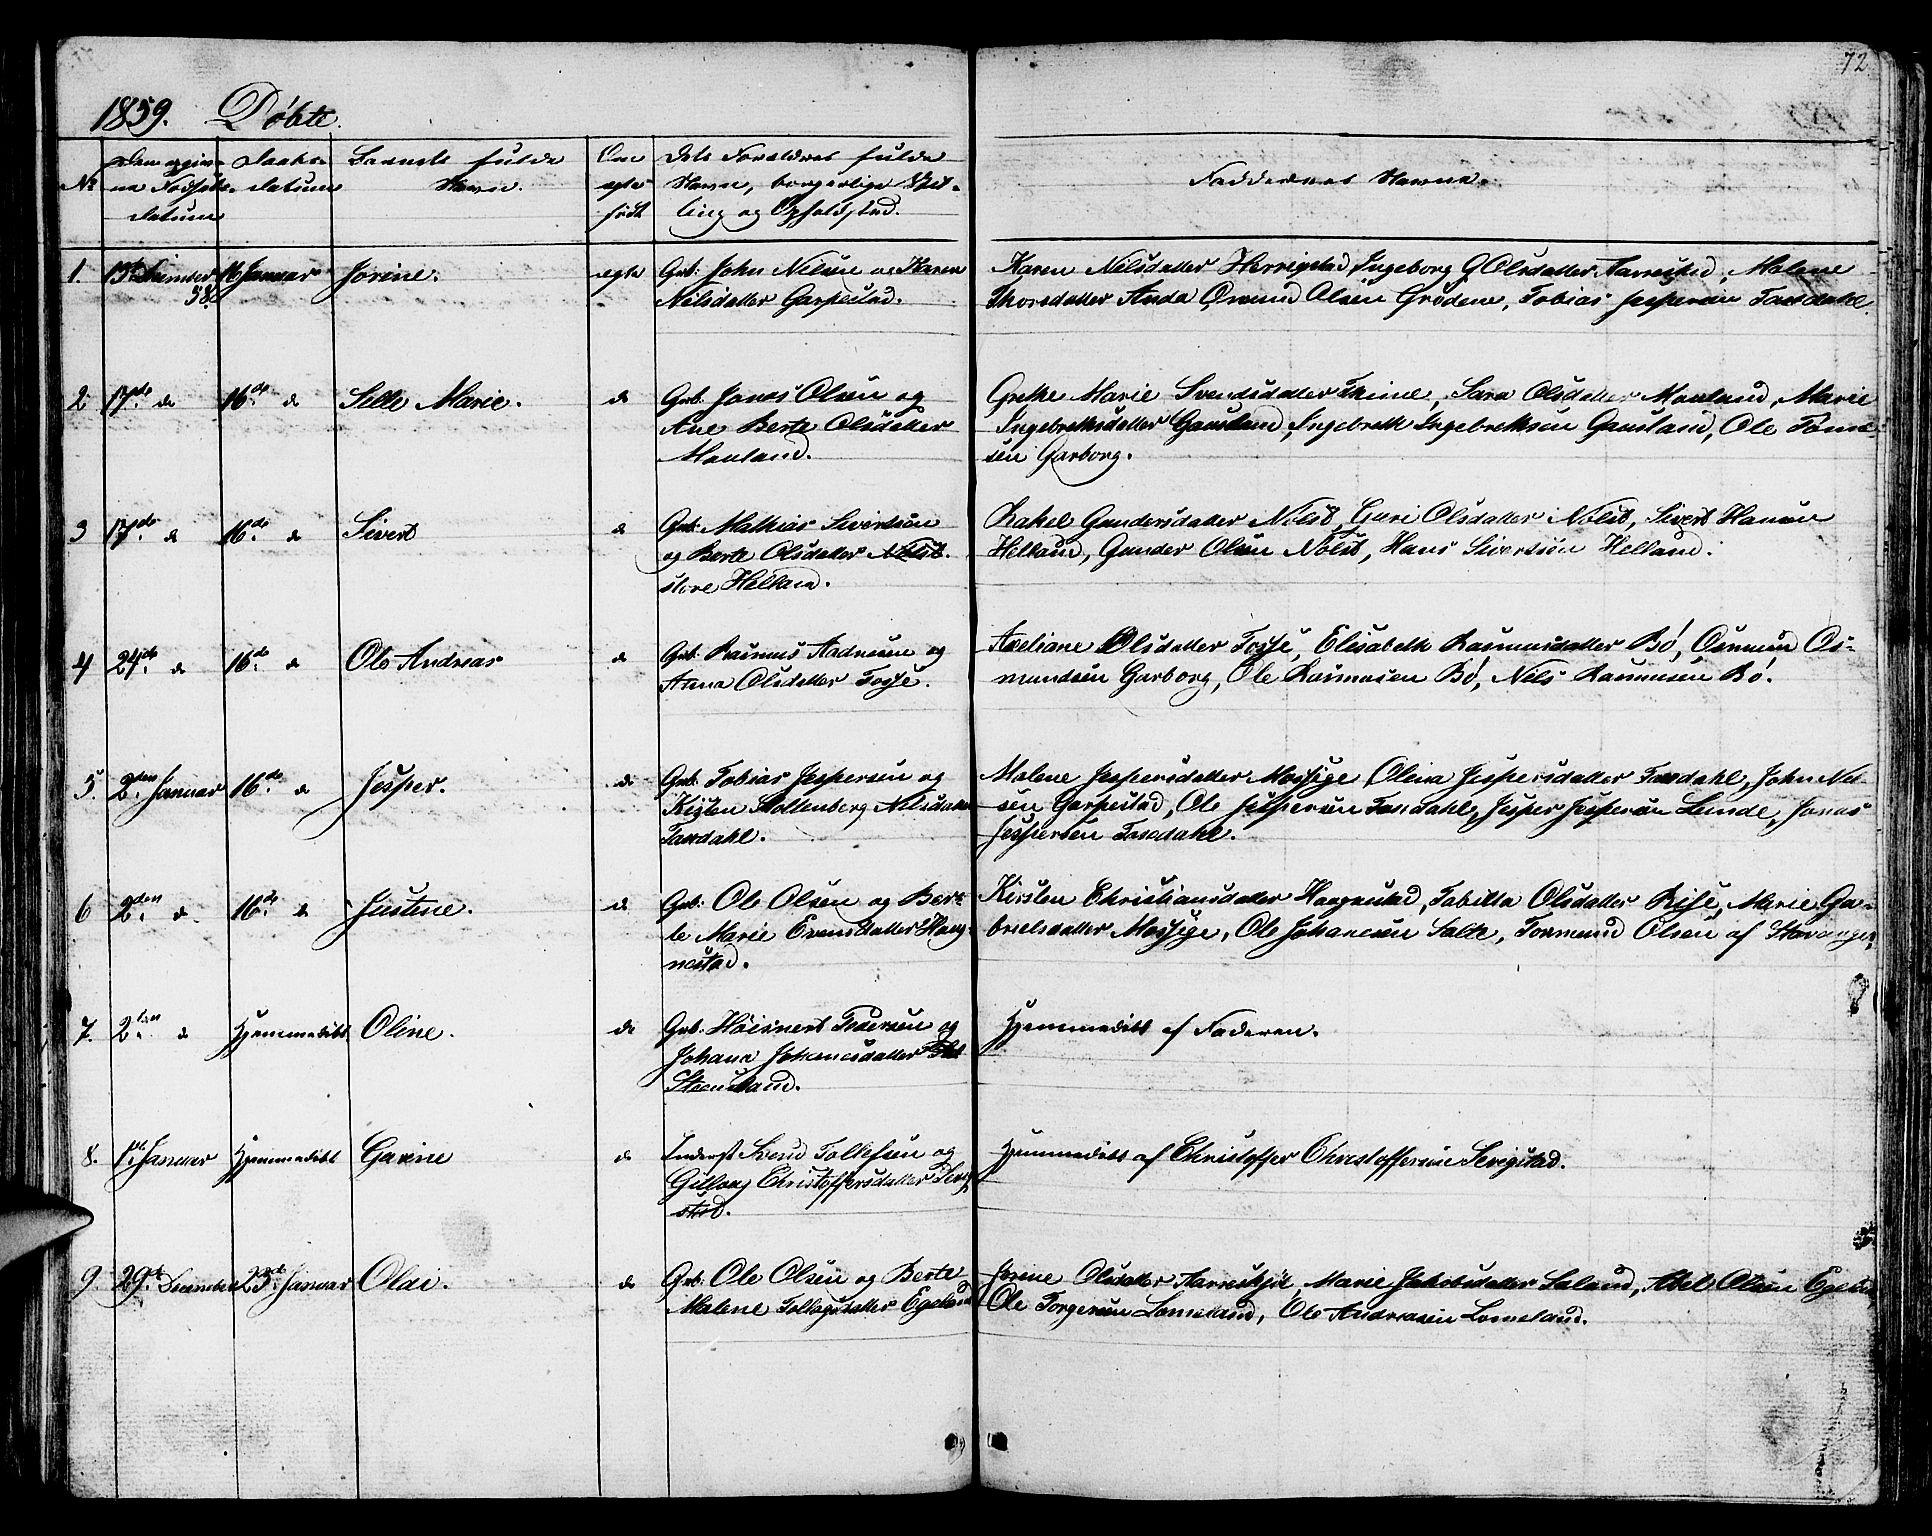 72
1859. Døbte.
No
Den opgivne Fødselsdatum
Daabsdatum
Barnets fulde Navn.
Om ægte født
Dets Forældres fulde Navn, borgerlige Stilling og Opholdsted.
Faddernes Navne.
1. 15de December 58. 16 Januar Jorine. ægte Grb: John Nilsen og Karen
Nilsdatter Garpestad.
Karen Nilsdatter Herrigstad, Ingeborg G Olsdatter Aarrestad, Malene
Thorsdatter Anda, Omund Olsen Grødem, Tobias Jespersøn Taxdahl.
2 17de do 16de do Sille Marie. do Grb. Jonas Olsen og
Ane Berte Olsdatter
Mauland.
Grethe Marie Svendsdatter Thime, Sara Olsdatter Mauland, Marie
Ingebretsdatter Gausland, Ingebreth Ingebretsen Gausland, Ole Tønne-
sen Garborg.
3 17de do 16de do Sivert do Grb. Mathias Sivertsøn
og Berte Olsdatter
store Helland.
Rakel Gundersdatter Nølst, Guri Olsdatter Nølst, Sivert Hansøn
Helland, Gunder Olsen Nølst, Hans Sivertsøn Helland.
4 24de do 16de do Ole Andreas do Grb. Rasmus Aadnesen og
Anna Olsdatter Fosse.
Axeliane Olsdatter Fosse, Elisabeth Rasmusdatter Bø, Osmund Os-
mundsen Garborg, Ole Rasmusen Bø, Nils Rasmusen Bø.
5. 2den Januar 16de do Jesper. do Grb. Tobias Jespersen og
Kisten Stoltenberg Nilsdatter
Taxdahl.
Malene Jespersdatter Mossige, Olina Jespersdatter Taxdahl, John Nil-
sen Garpestad, Ole Jespersøn Taxdahl, Jesper Jespersøn Lende, Jonas
Jespersen Taxdahl.
6 2den do 16de do Justine. do Grb. Ole Olsen og Ber-
te Marie Evensdatter Haug-
nestad.
Kirsten Christiansdatter Haugnestad, Tabitta Olsdatter Risse, Marie Ga-
brielsdatter Mossige, Ole Johanesøn Salte, Tormund Olsen af Stavanger.
7. 2den do Hjemmedøbt Oline. do Grb. Høisnert Pedersen og
Johana Johanesdatter
Steensland.
Hjemmedøbt af Faderen.
8. 1ste Januar Hjemmedøbt Garine do Inderst Svend Tollefsen og
Gitlaug Christoffersdatter Serig-
stad.
Hjemmedøbt af Christoffer Christoffersøn Serigstad.
9. 29de December 23de Januar Olai. do Grb. Ole Olsen og Berte
Malene Tollagsdatter Egeland
Serene Olsdatter Aarreskjot, Marie Jakobsdatter Saland, Abel Olsen Egeland
Ole Torgersøn Lomeland, Ole Andreasen Lomeland.